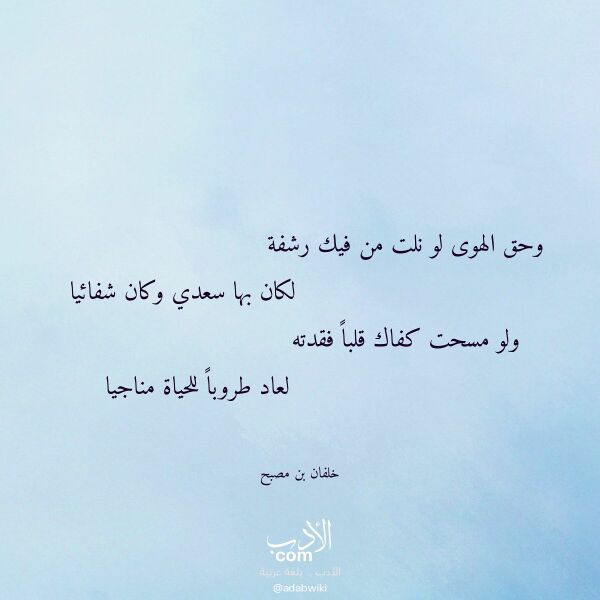 وحق الهوى لو نلت من فيك رشفة
لكان بها سعدي وكان شفائيا
ولو مسحت كفاك قلباً فقدته
لعاد طروباً للحياة مناجيا
خلفان بن مصبح
الأدب
com
الأدب .. بلغة عربية
@adabwiki